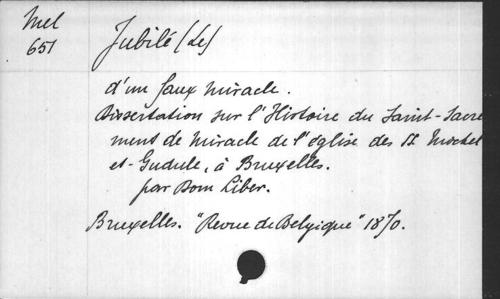 Mel
651
Jubilé (Le)
d'un faux miracle.
Dissertation sur l'Histoire du Saint-Sacre
ment de Miracle de l'église des St Michel
et Gudule, à Bruxelles.
par Dom Liber.
Bruxelles. "Revue de Belgique" 1870.